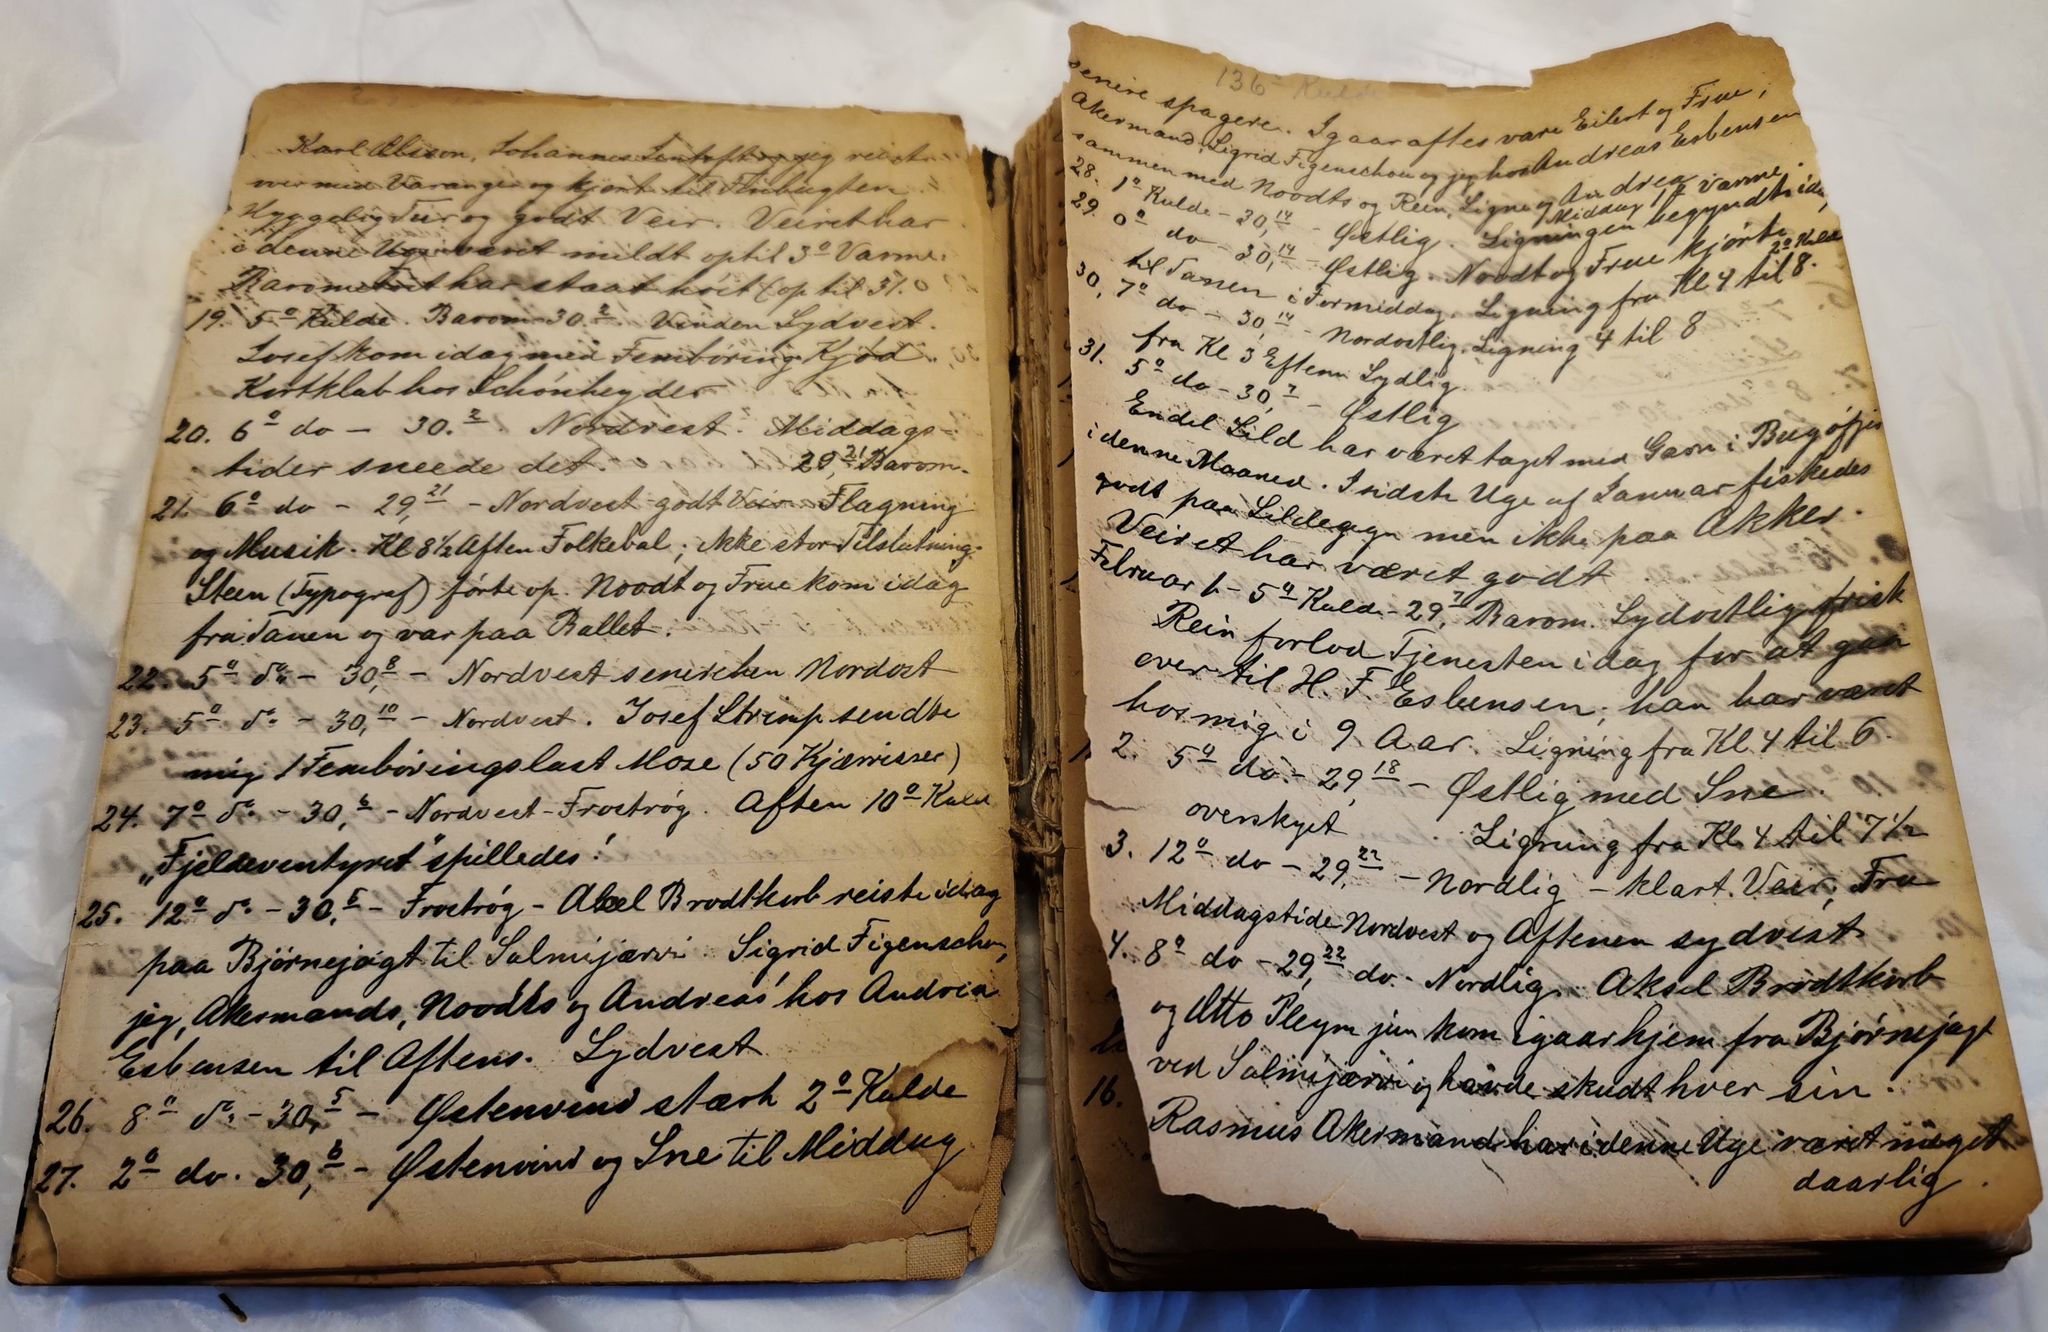 Karl Olsson, Johannes og jeg reiste
over med Varanger og kjørt til Finbugten
Hyggelig Tur og godt Veir. Veiret har
i denne Uge været mildt optil 3° Varme.
Barometret har staat høit (op til 31.0
19. 5° Kulde. Barom. 30.2 Vinden Sydvest.
Josef kom idag med Fembøring Kjød
Kortklub hos Schönheyder
20. 6° do - 30.2 Nordvest. Middags-
tider sneede det. 29,21 Barom.
21. 6° do - 29,21 - Nordvest godt Veir Flagning
og Musik. Kl 8½ Aften Folkebal; ikke stor Tilslutning.
Steen (Typograf) førte op. Noodt og Frue kom idag
fra Tanen og var paa Ballet.
22. 5° do - 30,8 - Nordvest senere hen Nordost
23. 5° do - 30,10 - Nordvest. Josef Strimp sendte
mig 1 Fembøringslast Mose (50 Kjærrisser)
24. 7° do - 30,6 - Nordvest - Frostrøg. Aften 10° Kulde
„Fjeldeventyret" spilledes!
25. 12° do - 30,5 - Frostrøg - Aksel Brodtkorb reiste idag
paa Bjørnejagt til Salmijærvi. Sigrid Figenschou,
jeg, Akermands, Noodts og Andreas' hos Andrea
Esbensen til Aftens. Sydvest
26. 8° do - 30,5 - Østenvind stærk 2° Kulde
27. 2° do. 30,6 - Østenvind og Sne til Middag
136
senere spagere. Igaaraftes vare Eilert og Frue,
Akermand, Sigrid Figenschou og jeg hos Andreas Esbensen
sammen med Noodts og Rein, Signe og Andrea
Middag 1° Varme
28. 1° Kulde - 30,14 - Østlig. Ligningen begyndte idag
29. 0° do - 30,14 - Østlig. Noodt og Frue kjørte
til Tanen i Formiddag. Ligning fra Kl 4 til 8. 2° Kulde
30. 7° do - 30,14 - Nordostlig. Ligning 4 til 8
fra Kl 3 Efterm Sydlig.
31. 5° do - 30,7 - Østlig
Endel Sild har været taget med Garn i Bugøfjo
i denne Maaned. I sidste Uge af Januar fiskedes
godt paa Sildeagn men ikke paa Akker.
Veiret har været godt
Februar 1. - 5° Kulde - 29,7 Barom. Sydostlig frisk
Rein forlod Tjenesten idag for at gaa
over til H. F. Esbensen; han har været
hos mig i 9 Aar. Ligning fra Kl. 4 til 6.
2. 5° do. - 29,18 - Østlig med Sne.
overskyet. Ligning fra Kl 4 til 7½
3. 12° do - 29,22 - Nordlig - klart Veir; Fra
Middagstide Nordvest og Aftenen sydvest
4. 8° do - 29,22 do. - Nordlig. Aksel Brodtkorb
og Otto Pleym jun kom igaar hjem fra Bjørnejagt
ved Salmijærvi og havde skudt hver sin.
16.
Rasmus Akermand har i denne Uge været meget
daarlig.